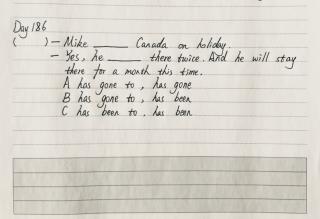 Day 186
( ) - Mike ______ Canada on holiday.
- Yes, he ______ there twice. And he will stay
there for a month this time.
A has gone to, has gone
B has gone to, has been
C has been to, has been